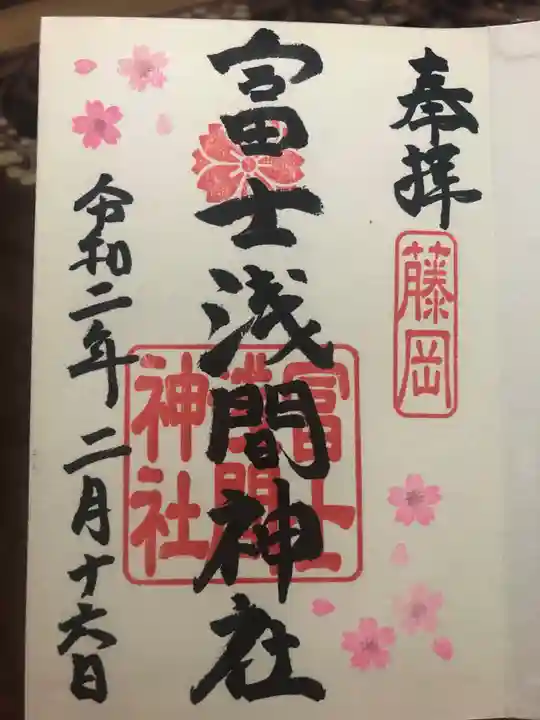 奉拝
藤岡
富士浅間神社
富士
浅間
神社
令和二年 二月十六日